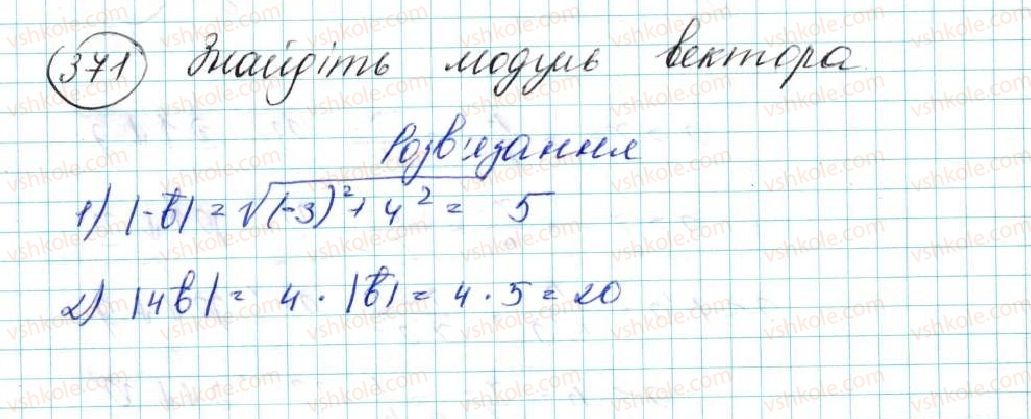 371 Знайдіть модуль вектора
Розв'язання
1) |-b̄| = √(-3)² + 4² = 5
2) |4b̄| = 4 · |b̄| = 4 · 5 = 20